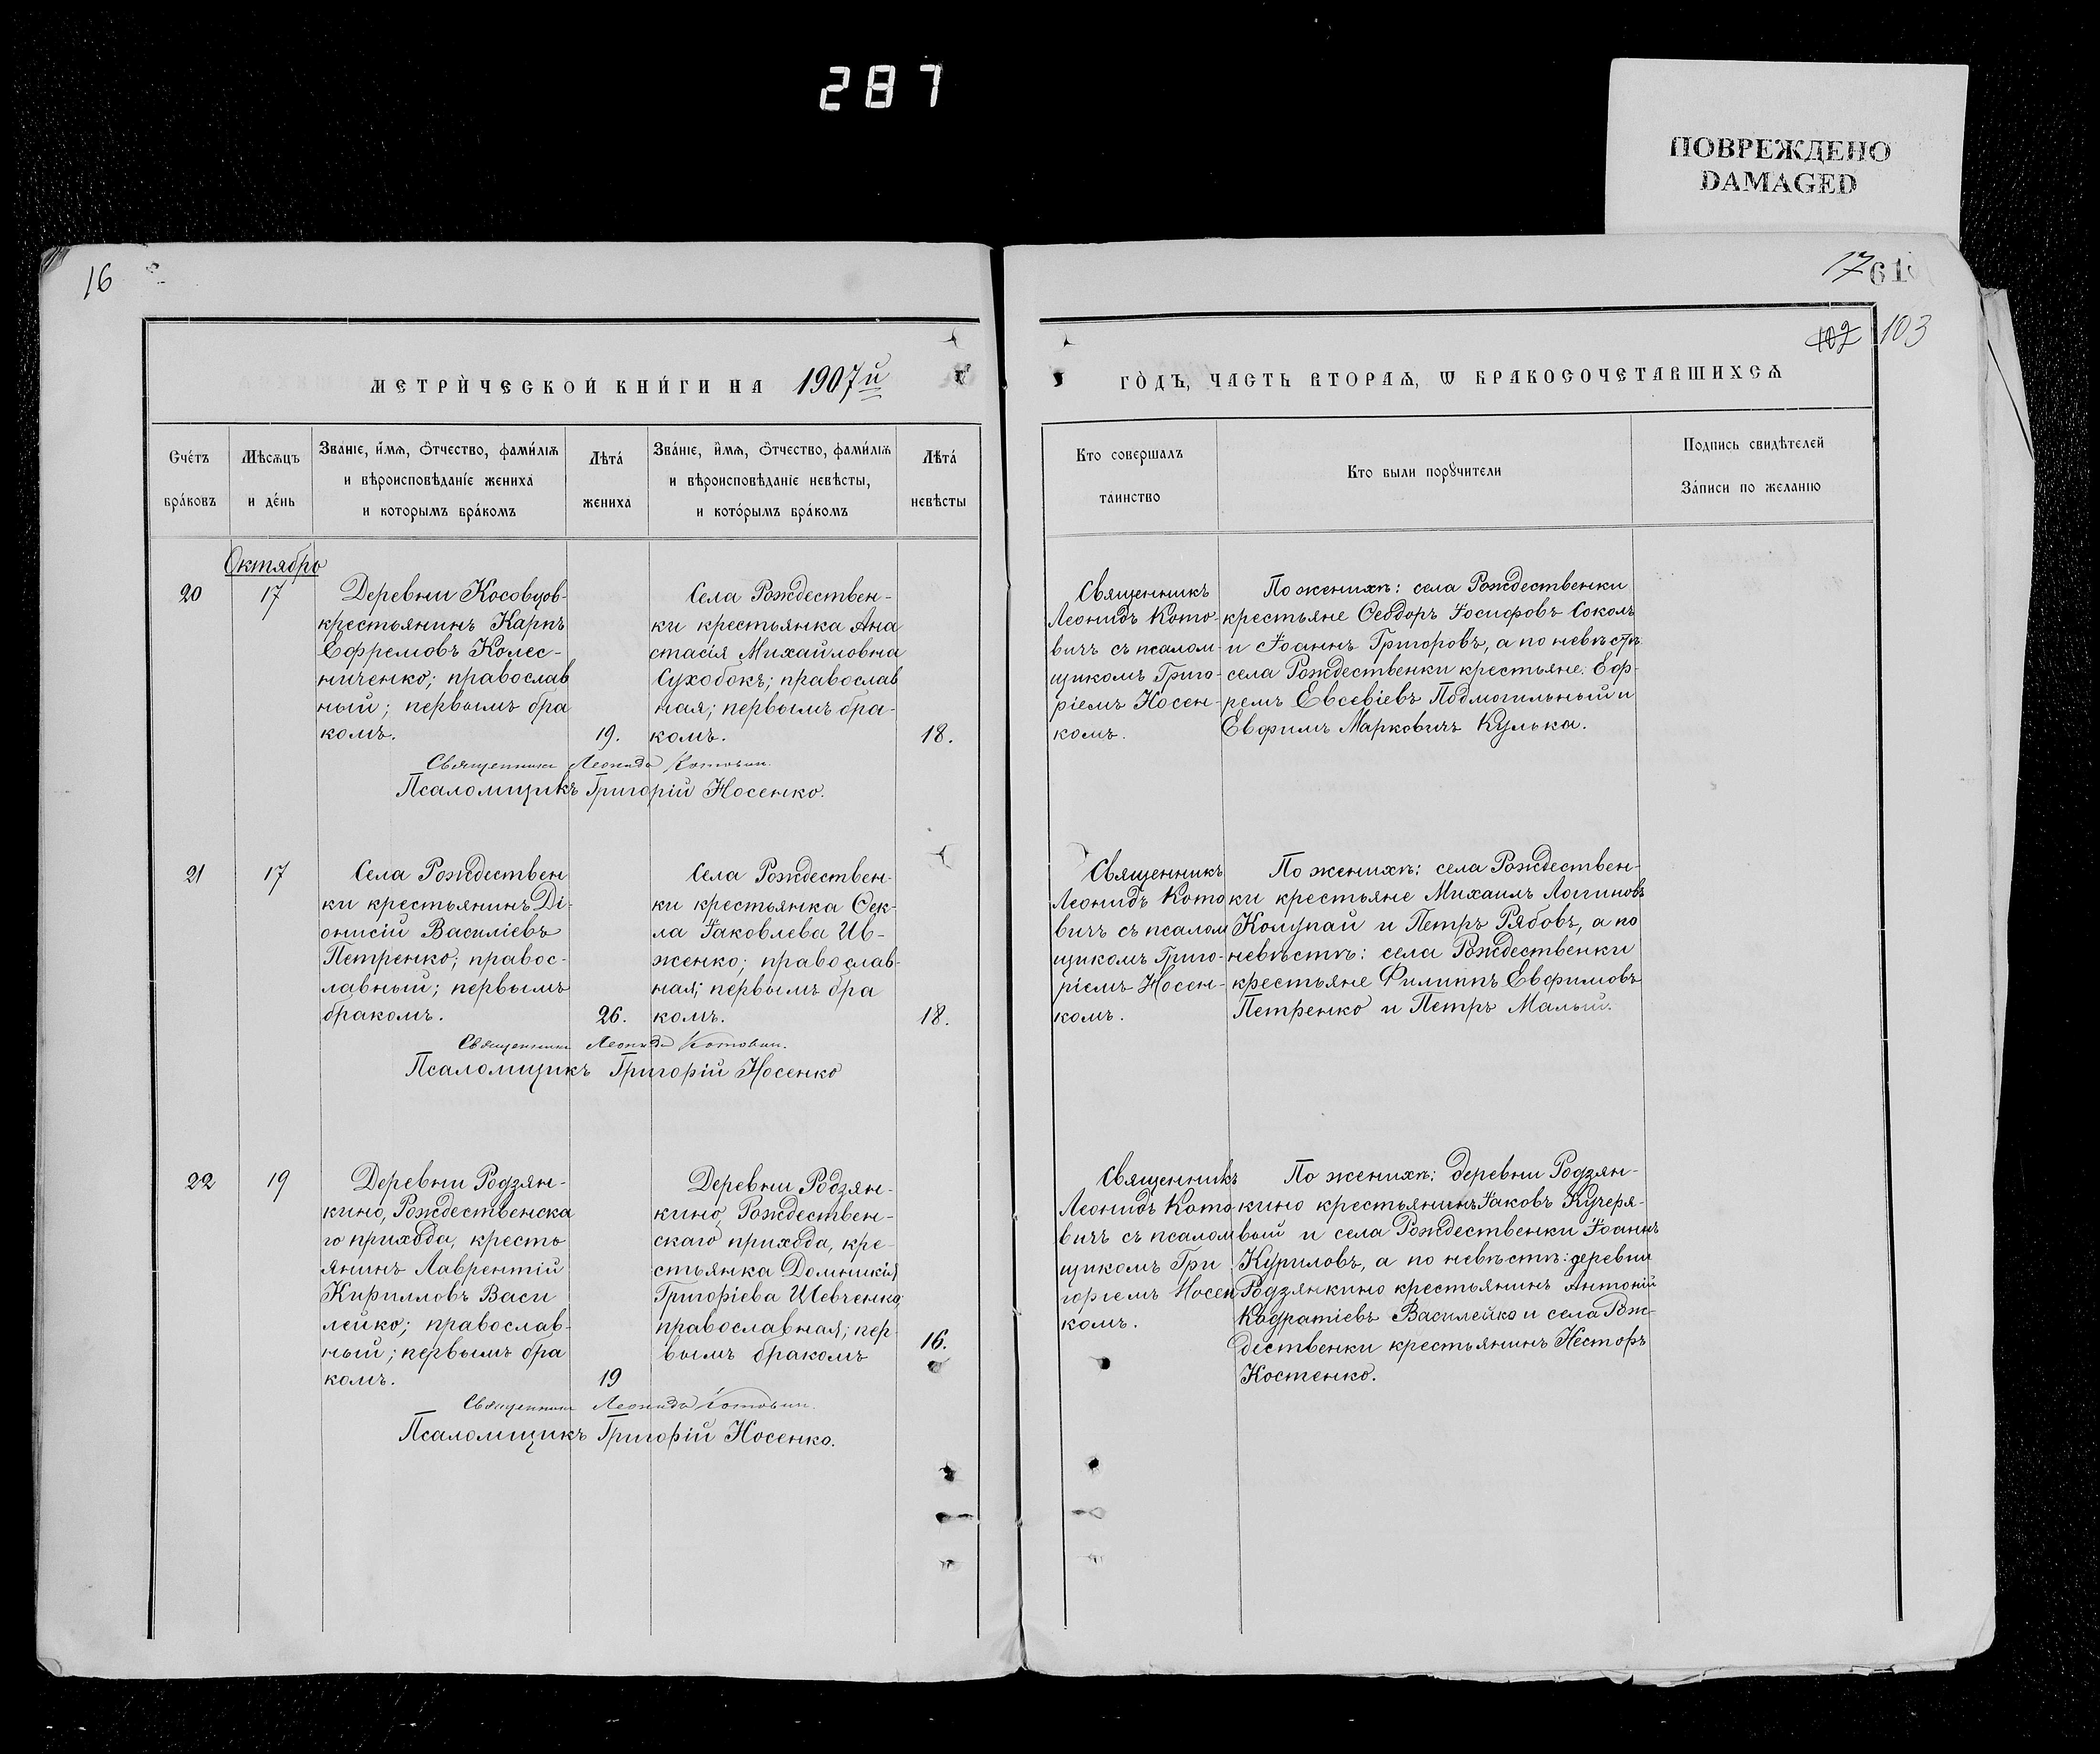 287
ПОВРЕЖДЕНО
DAMAGED
16
17 61
102 103
МЕТРИ́ЧЕСКОЙ КНИ́ГИ НА 1907й
ГО́ДЪ, ЧАСТЬ ВТОРАѦ, Ѡ БРАКОСОЧЕТАВШИХСѦ
Сче́тъ
бра́ковъ
Мѣсѧцъ
и де́нь
Званіе, и́мѧ, о́тчество, фами́лїѧ
и вѣроисповѣданїе жениха̀
и которымъ бра́комъ
Лѣта́
жениха
Зва́нїе, и́мѧ, о́тчество, фами́лїѧ
и вѣроисповѣданїе невѣсты,
и кото́рымъ бра́комъ
Лѣта́
невѣсты
Кто совершалъ
таинство
Кто были порꙋчители
Подпись свидѣтелей
За́писи по желанїю
Октябрь
20
17
Деревни Косовцов-
крестьянинъ Карпъ
Ефремовъ Колес-
ниченко; православ
ный; первымъ бра
комъ.
19.
Села Рождествен-
ки крестьянка Ана
стасія Михайловна
Сухобокъ; православ
ная; первымъ бра-
комъ.
18.
Священникъ
Леонидъ Кото-
вичъ съ псалом-
щикомъ Григо-
ріемъ Носен-
комъ.
По женихѣ: села Рождественки
крестьяне Ѳеодоръ Іосифовъ Соколъ
и Іоаннъ Григоровъ, а по невѣстѣ
села Рождественки крестьяне: Еф-
ремъ Евсевіевъ Подмогильный и
Евфимъ Марковичъ Кулька.
Священникъ Леонидъ Котовичъ.
Псаломщикъ Григорій Носенко.
21
17
Села Рождествен
ки крестьянинъ Ді-
онисій Василіевъ
Петренко; правос-
лавный; первымъ
бракомъ.
26.
Села Рождествен-
ки крестьянка Ѳек-
ла Іаковлева Ив-
женко; православ-
ная; первымъ бра
комъ.
18.
Священникъ
Леонидъ Кото
вичъ съ псалом
щикомъ Григо-
ріемъ Носен-
комъ.
По женихѣ: села Рождествен-
ки крестьяне Михаилъ Логиновъ
Колупай и Петръ Рябовъ, а по
невѣстѣ: села Рождественки
крестьяне Филиппъ Евфимовъ
Петренко и Петръ Малый.
Священникъ Леонидъ Котовичъ.
Псаломщикъ Григорій Носенко
22
19
Деревни Родзян-
кино, Рождественска
го прихода, кресть
янинъ Лаврентій
Кирилловъ Васи
лейко; православ-
ный; первымъ бра
комъ.
19
Деревни Родзян-
кино, Рождествен-
скаго прихода, кре-
стьянка Домникія
Григоріева Шевченко;
православная; пер-
вымъ бракомъ
16.
Священникъ
Леонидъ Кото
вичъ съ псалом
щикомъ Гри
горіемъ Носен
комъ.
По женихѣ: деревни Родзян-
кино крестьянинъ Іаковъ Кучеря-
вый и села Рождественки Іоаннъ
Куриловъ, а по невѣстѣ: деревни
Родзянкино крестьянинъ Антоній
Кодратіевъ Василейко и села Рож-
дественки крестьянинъ Несторъ
Костенко.
Священникъ Леонидъ Котовичъ.
Псаломщикъ Григорій Носенко.